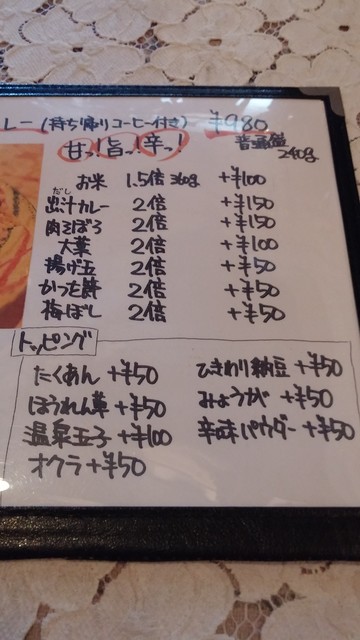 レー(持ち帰りコーヒー付き) ¥980
甘っ!旨っ!辛っ! 普通盛
240g
お米 1.5倍 360g +¥100
だし
出汁カレー 2倍 +¥150
肉そぼろ 2倍 +¥150
大葉 2倍 +¥100
揚げ玉 2倍 +¥50
かつお節 2倍 +¥50
梅ぼし 2倍 +¥50
トッピング
たくあん +¥50 ひきわり納豆 +¥50
ほうれん草 +¥50 みょうが +¥50
温泉玉子 +¥100 辛味パウダー +¥50
オクラ +¥50